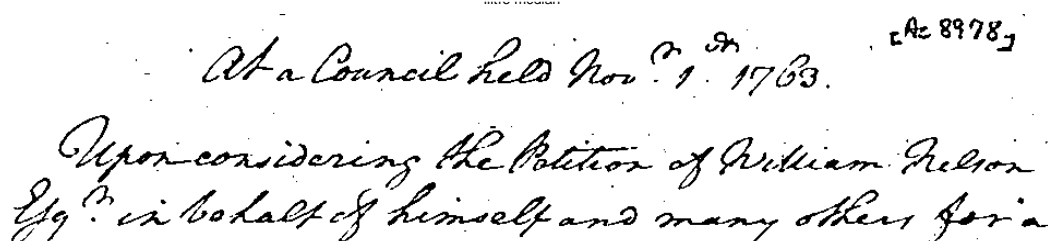 filtre median
[Ac 8978]
At a Council held Novr. 1st. 1763.
Upon considering the Petition of William Nelson
Esqr. in behalf of himself and many others for a